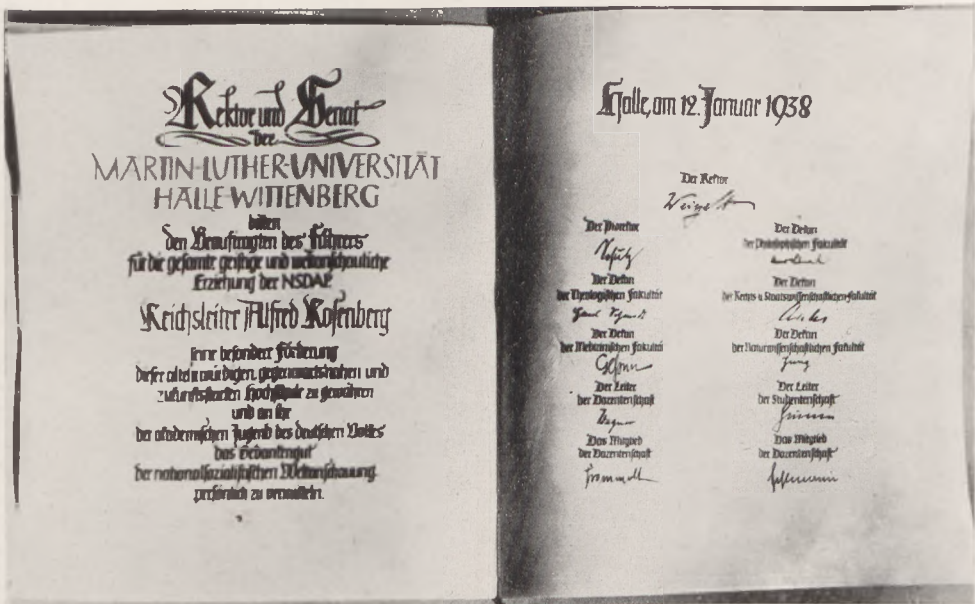 Rektor und Senat
der
MARTIN-LUTHER-UNIVERSITÄT
HALLE-WITTENBERG
bitten
den Beauftragten des Führers
für die gesamte geistige und weltanschauliche
Erziehung der NSDAP.
Reichsleiter Alfred Rosenberg
seine besondere Förderung
dieser altehrwürdigen, gegenwartsnahen und
zukunftsstarken Hochschule zu gewähren
und an ihr
der akademischen Jugend des deutschen Volkes
das Gedankengut
der nationalsozialistischen Weltanschauung
persönlich zu vermitteln.
Halle, am 12. Januar 1938
Der Rektor
Weigelt
Der Prorektor
Der Dekan
der Philosophischen Fakultät
Der Dekan
der Theologischen Fakultät
Der Dekan
der Rechts- u. Staatswissenschaftlichen Fakultät
Der Dekan
der Medizinischen Fakultät
Der Dekan
der Naturwissenschaftlichen Fakultät
Der Leiter
der Dozentenschaft
Wagner
Der Leiter
der Studentenschaft
Das Mitglied
der Dozentenschaft
Das Mitglied
der Dozentenschaft